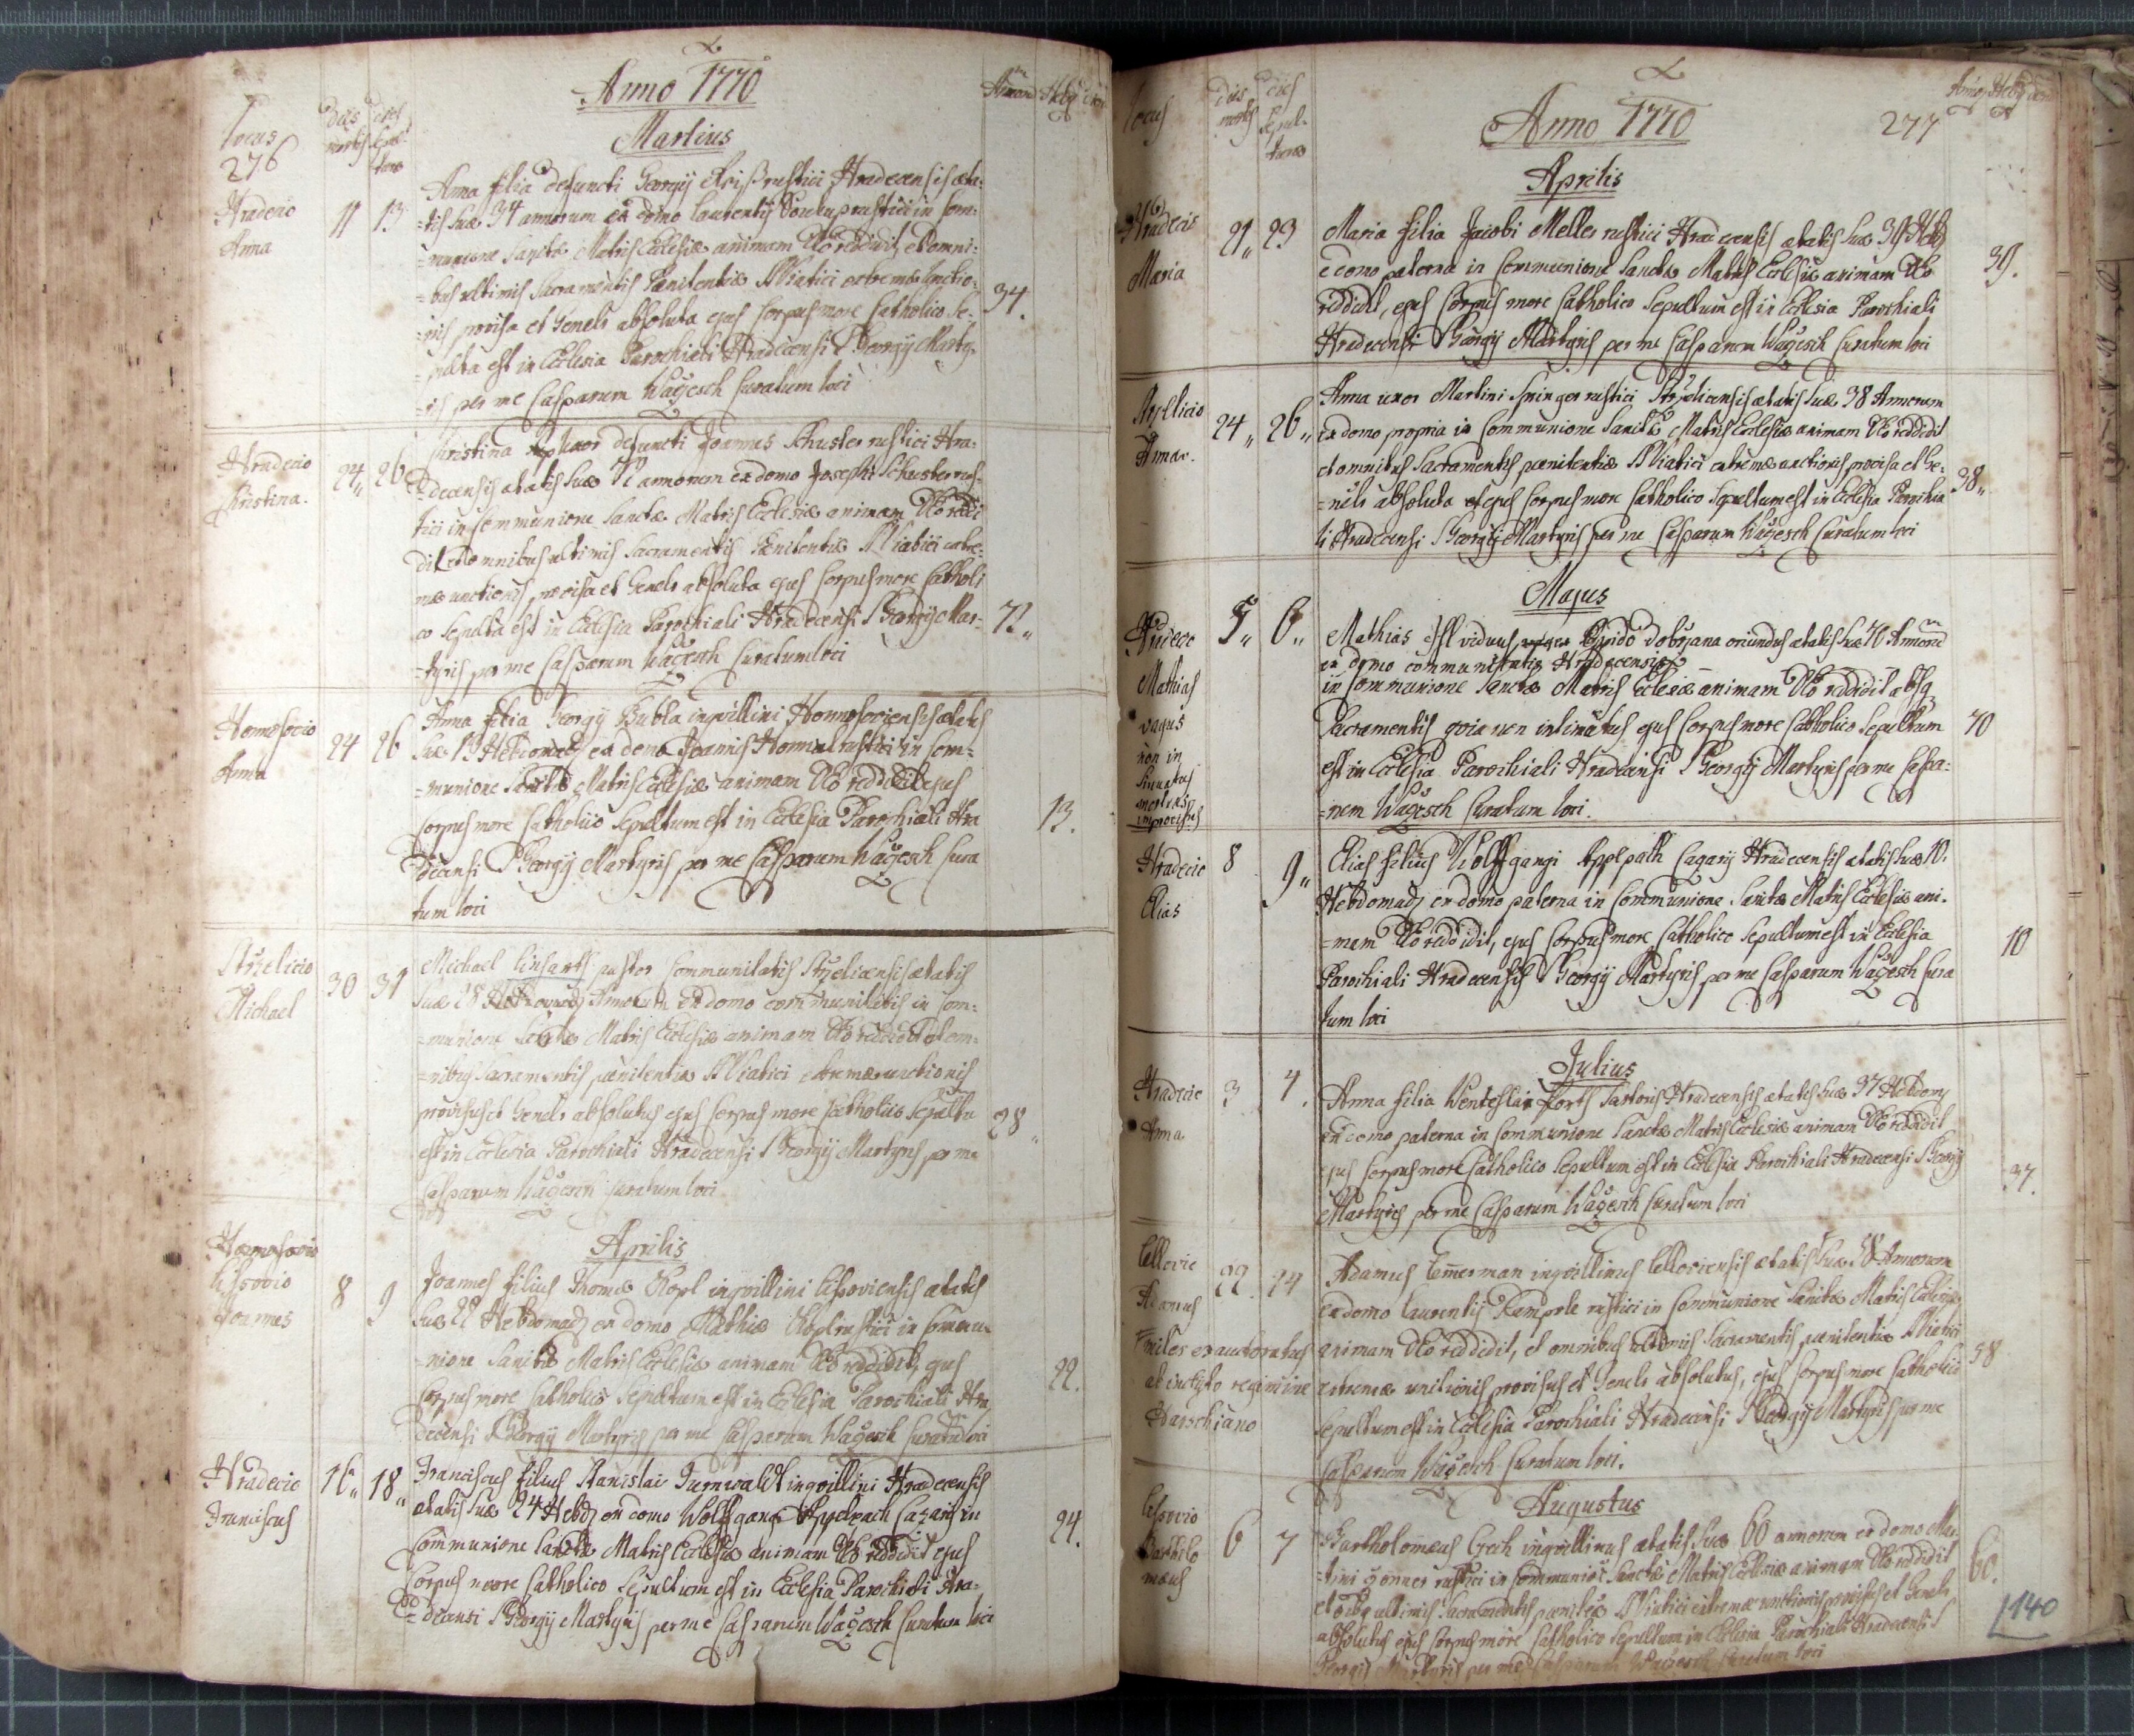 Anno 1770
Martius
Locus
dies mortis
dies Sepul-
turæ
276
Hradecio
Anna
11 13
Anna filia defuncti Georgij rustici Hradecensis æta-
=tis suæ 34 annorum ex domo Laurentij rustici in Com=
=munione Sanctæ Matris Ecclesiæ animam Deo reddidit, et omni=
=bus ultimis Sacramentis Pænitentiæ SViatici extremæ Unctio=
=nis provisa et Genels absoluta ejus Corpus more Catholico Se=
=pulta est in Ecclesia Parochiali Hradecensi S Georgij Marty=
=ris per me Casparum Wagesch Curatum loci
34.
Hradecio
Christina.
24 26
Christina uxor defuncti Joannis Schuster rustici Hra=
decensis ætatis suæ 72 annorum ex domo Josephi Schuster rus=
tici in Communione Sanctæ Matris Ecclesiæ animam Deo reddi
dit et omnibus ultimis Sacramentis Pænitentiæ SViatici extre=
mæ unctionis provisa et Genels absoluta ejus Corpus more Catholi
co Sepulta est in Ecclesia Parochiali Hradecensi S Georgij Mar=
=tyris per me Casparum Wagesch Curatum loci
72
Anna
24 26
Anna filia Georgij Bubla inquillini ætatis
suæ 13 Hebdomad ex domo Joannis rustici in Com=
=munione Sanctæ Matris Ecclesiæ animam Deo reddidit ejus
Corpus more Catholico Sepultum est in Ecclesia Parochiali Hra
decensi S Georgij Martyris per me Casparum Wagesch Cura
tum loci
13.
Strzelicio
Michael
30 31
Michael Linhart pastor Communitatis Strzelicensis ætatis
suæ 28 Annorum ex domo communitatis in Com=
=munione Sanctæ Matris Ecclesiæ animam Deo reddidit et om=
=nibus Sacramentis pænitentiæ SViatici extremæ unctionis
provisus et Genels absolutus ejus Corpus more Catholico Sepultu
est in Ecclesia Parochiali Hradecensi S Georgij Martyris per me
Casparum Wagesch Curatum loci
28
Aprilis
Lissovio
Joannes
8 9
Joannes filius Thomæ Kopl inquillini Lissoviensis ætatis
suæ 22 Hebdomad ex domo Mathiæ rustici in Commu=
=nione Sanctæ Matris Ecclesiæ animam Deo reddidit, ejus
Corpus more Catholico Sepultum est in Ecclesia Parochiali Hra
decensi S Georgij Martyris per me Casparum Wagesch Curatum loci
22.
Hradecio
Franciscus
16 18
Franciscus filius Stanislai inquillini Hradecensis
ætatis suæ 24 Hebd ex domo Wolffgangi in
Communione Sanctæ Matris Ecclesiæ animam Deo reddidit ejus
Corpus more Catholico Sepultum est in Ecclesia Parochiali Hra=
=decensi S Georgij Martyris per me Casparum Wagesch Curatum loci
24.
Anno 1770
277
Locus
dies mortis
dies Sepul-
turæ
Aprilis
Hradecio
Maria
21 23
Maria filia Jacobi Meller rustici Hradecensis ætatis suæ 39 Hebd
e domo paterna in Communione Sanctæ Matris Ecclesiæ animam Deo
reddidit, ejus Corpus more Catholico Sepultum est in Ecclesia Parochiali
Hradecensi S Georgij Martyris per me Casparum Wagesch Curatum loci
39.
Strzelicio
Anna.
24 26
Anna uxor Martini Springer rustici Strzelicensis ætatis suæ 38 Annorum
ex domo propria in Communione Sanctæ Matris Ecclesiæ animam Deo reddidit
et omnibus Sacramentis pænitentiæ SViatici extremæ unctionis provisa et Ge=
=nels absoluta ejus Corpus more Catholico Sepultum est in Ecclesia Parochia
li Hradecensi S Georgij Martyris per me Casparum Wagesch Curatum loci
38
Majus
Hradecio
Mathias
vagus
non in
timatus
improvisus
5 6
Mathias est viduus, oriundus ætatis suæ 70 Annorum
ex domo communitatis Hradecensis
in Communione Sanctæ Matris Ecclesiæ animam Deo reddidit absq
Sacramentis quia non intimatus ejus Corpus more Catholico Sepultum
est in Ecclesia Parochiali Hradecensi S Georgij Martyris per me Caspa=
=rum Wagesch Curatum loci.
70
Hradecio
Elias
8 9
Elias filius Wolffgangi Hradecensis ætatis suæ 10.
Hebdomad ex domo paterna in Communione Sanctæ Matris Ecclesiæ ani=
=mam Deo reddidit, ejus Corpus more Catholico Sepultum est in Ecclesia
Parochiali Hradecensis S Georgij Martyris per me Casparum Wagesch Cura
tum loci
10
Julius
Hradecio
Anna
3 4.
Anna filia Wenceslai Sartoris Hradecensis ætatis suæ 37 Hebdom
ex domo paterna in Communione Sanctæ Matris Ecclesiæ animam Deo reddidit
ejus Corpus more Catholico Sepultum est in Ecclesia Parochiali Hradecensi S Georgij
Martyris per me Casparum Wagesch Curatum loci
37.
Adamus
miles exauctoratus
ab inclyto regimine
Harschiano
22. 24
Adamus Temerman inquillinus ætatis suæ 58 Annorum
ex domo Laurentij rustici in Communione Sanctæ Matris Ecclesiæ
animam Deo reddidit, et omnibus ultimis Sacramentis pænitentiæ SViatici
extremæ unctionis provisus et Genels absolutus, ejus Corpus more Catholico
Sepultum est in Ecclesia Parochiali Hradecensi S Georgij Martyris per me
Casparum Wagesch Curatum loci.
58
Augustus
Lissovio
Bartholo
mæus
6 7
Bartholomæus Czech inquillinus ætatis suæ 60 annorum ex domo Mar=
=tini rustici in Communione Sanctæ Matris Ecclesiæ animam Deo reddidit
et ultimis Sacramentis SViatici extremæ unctionis provisus et Genels
absolutus ejus Corpus more Catholico Sepultum in Ecclesia Parochiali Hradecensi S
Georgij Martyris per me Casparum Wagesch Curatum loci
60.
140